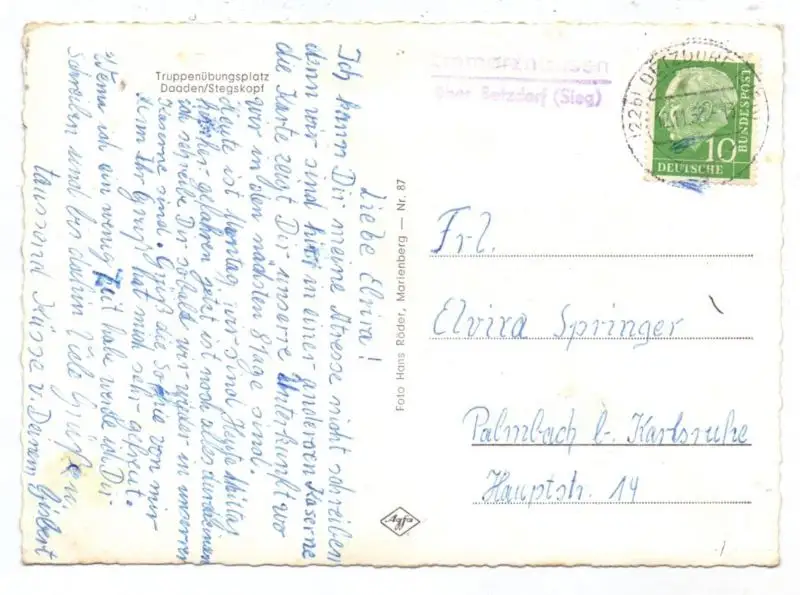 Truppenübungsplatz
Daaden/Stegskopf
Liebe Elvira!
Ich kann Dir meine Adresse nicht schreiben
denn wir sind hier in einer anderen Kaserne
die Karte zeigt Dir unsere Unterkunft wo
wir in den nächsten 8 Tage sind.
Heute ist Montag, wir sind Heute Mittag
hierher gefahren jetzt ist noch alles
ich schreibe Dir sobald wir wieder in unserer
Kaserne sind. Grüß die Sophie von mir
denn Ihr Gruß hat mich sehr gefreut.
Wenn ich ein wenig Zeit habe werde ich Dir
schreiben und bis dahin Viele Grüße u.
tausend Küsse v. Deinem Gisbert
Foto Hans Röder, Marienberg — Nr. 87
Agfa
über Betzdorf (Sieg)
(22b) BETZDORF
10
DEUTSCHE
BUNDESPOST
Frl.
Elvira Springer
Palmbach b. Karlsruhe
Hauptstr. 14